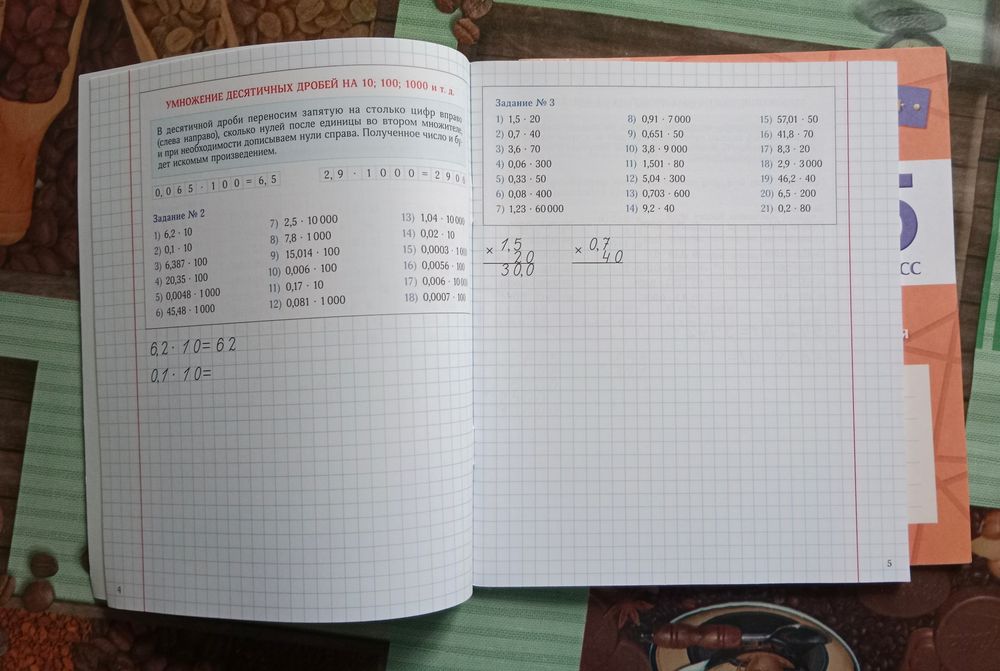 УМНОЖЕНИЕ ДЕСЯТИЧНЫХ ДРОБЕЙ НА 10; 100; 1000 и т. д.
В десятичной дроби переносим запятую на столько цифр вправо
(слева направо), сколько нулей после единицы во втором множителе,
и при необходимости дописываем нули справа. Полученное число и бу-
дет искомым произведением.
0,065 · 100 = 6,5
2,9 · 1000 = 2900
Задание № 2
1) 6,2 · 10
2) 0,1 · 10
3) 6,387 · 100
4) 20,35 · 100
5) 0,0048 · 1 000
6) 45,48 · 1 000
7) 2,5 · 10 000
8) 7,8 · 1 000
9) 15,014 · 100
10) 0,006 · 100
11) 0,17 · 10
12) 0,081 · 1 000
13) 1,04 · 10 000
14) 0,02 · 10
15) 0,0003 · 1 000
16) 0,0056 · 100
17) 0,006 · 10 000
18) 0,0007 · 100
6,2 · 10 = 62
0,1 · 10 =
4
Задание № 3
1) 1,5 · 20
2) 0,7 · 40
3) 3,6 · 70
4) 0,06 · 300
5) 0,33 · 50
6) 0,08 · 400
7) 1,23 · 60 000
8) 0,91 · 7 000
9) 0,651 · 50
10) 3,8 · 9 000
11) 1,501 · 80
12) 5,04 · 300
13) 0,703 · 600
14) 9,2 · 40
15) 57,01 · 50
16) 41,8 · 70
17) 8,3 · 20
18) 2,9 · 3 000
19) 46,2 · 40
20) 6,5 · 200
21) 0,2 · 80
× 1,5
20
30,0
× 0,7
40
5
5
СС
я